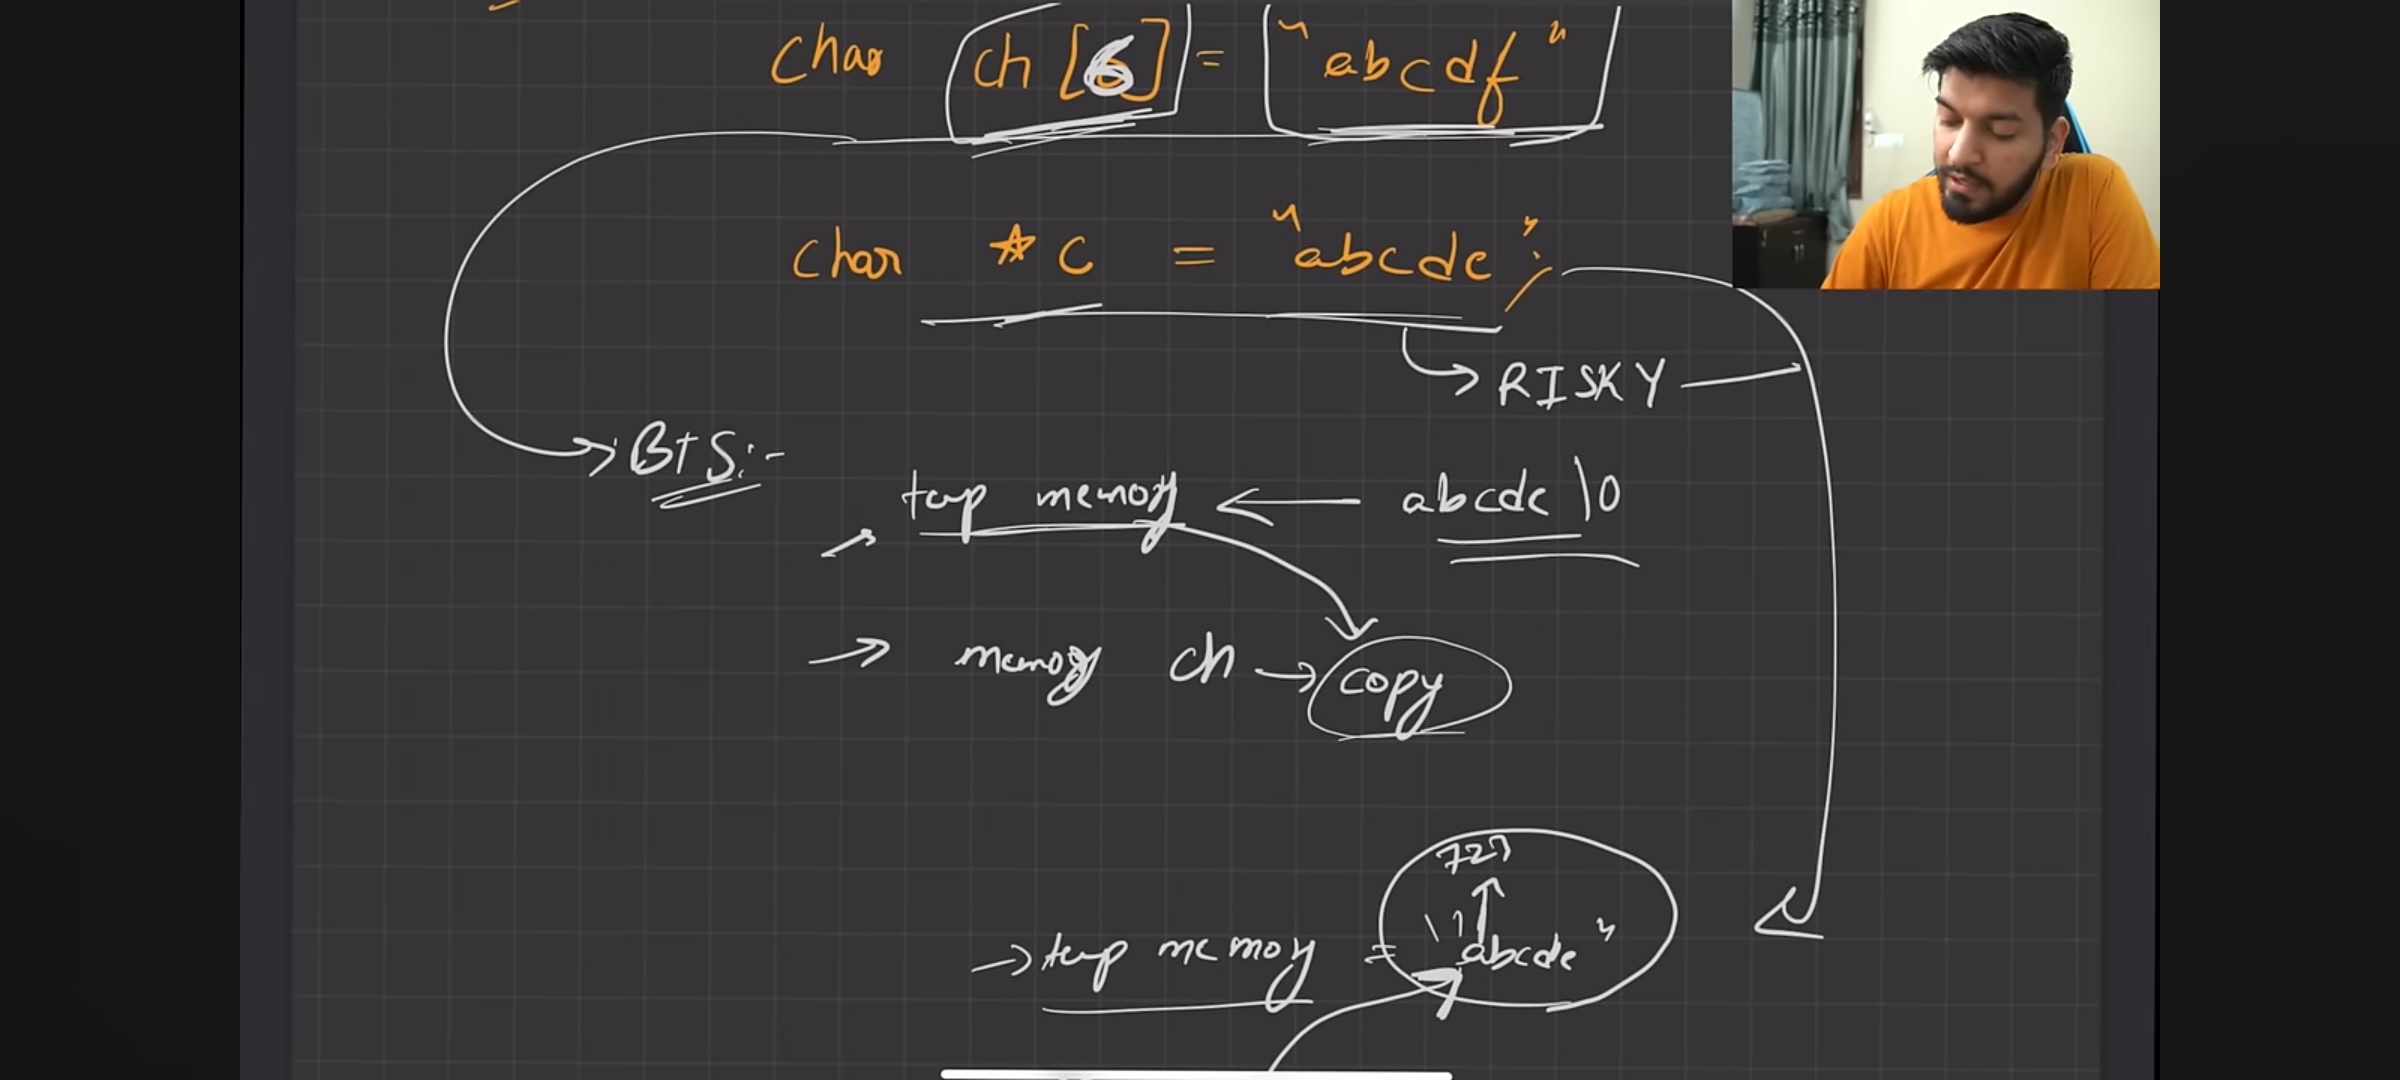 char ch [6] = "abcdf"
char * c = "abcde";
RISKY
BTS:-
temp memory ← abcde \0
→ memory ch → copy
727
→ temp memory = "abcde"